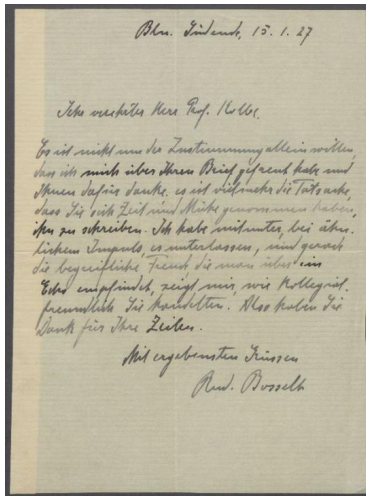 Bln. Südende, 15. 1. 27
Sehr verehrter Herr Prof. Kolbe.
Es ist nicht um der Zustimmung allein willen,
dass ich mich über Ihren Brief gefreut habe und
Ihnen dafür danke. es ist vielmehr die Tatsache,
dass Sie sich Zeit und Mühe genommen haben,
ihn zu schreiben. Ich habe mitunter, bei ähn-
lichem Impuls, es unterlassen, und gerade
die begreifliche Freude, die man über ein
Echo empfindet, zeigt mir, wie kollegial-
freundlich Sie handelten. Also haben Sie
Dank für Ihre Zeilen.
Mit ergebensten Grüssen
Rud. Bosselt